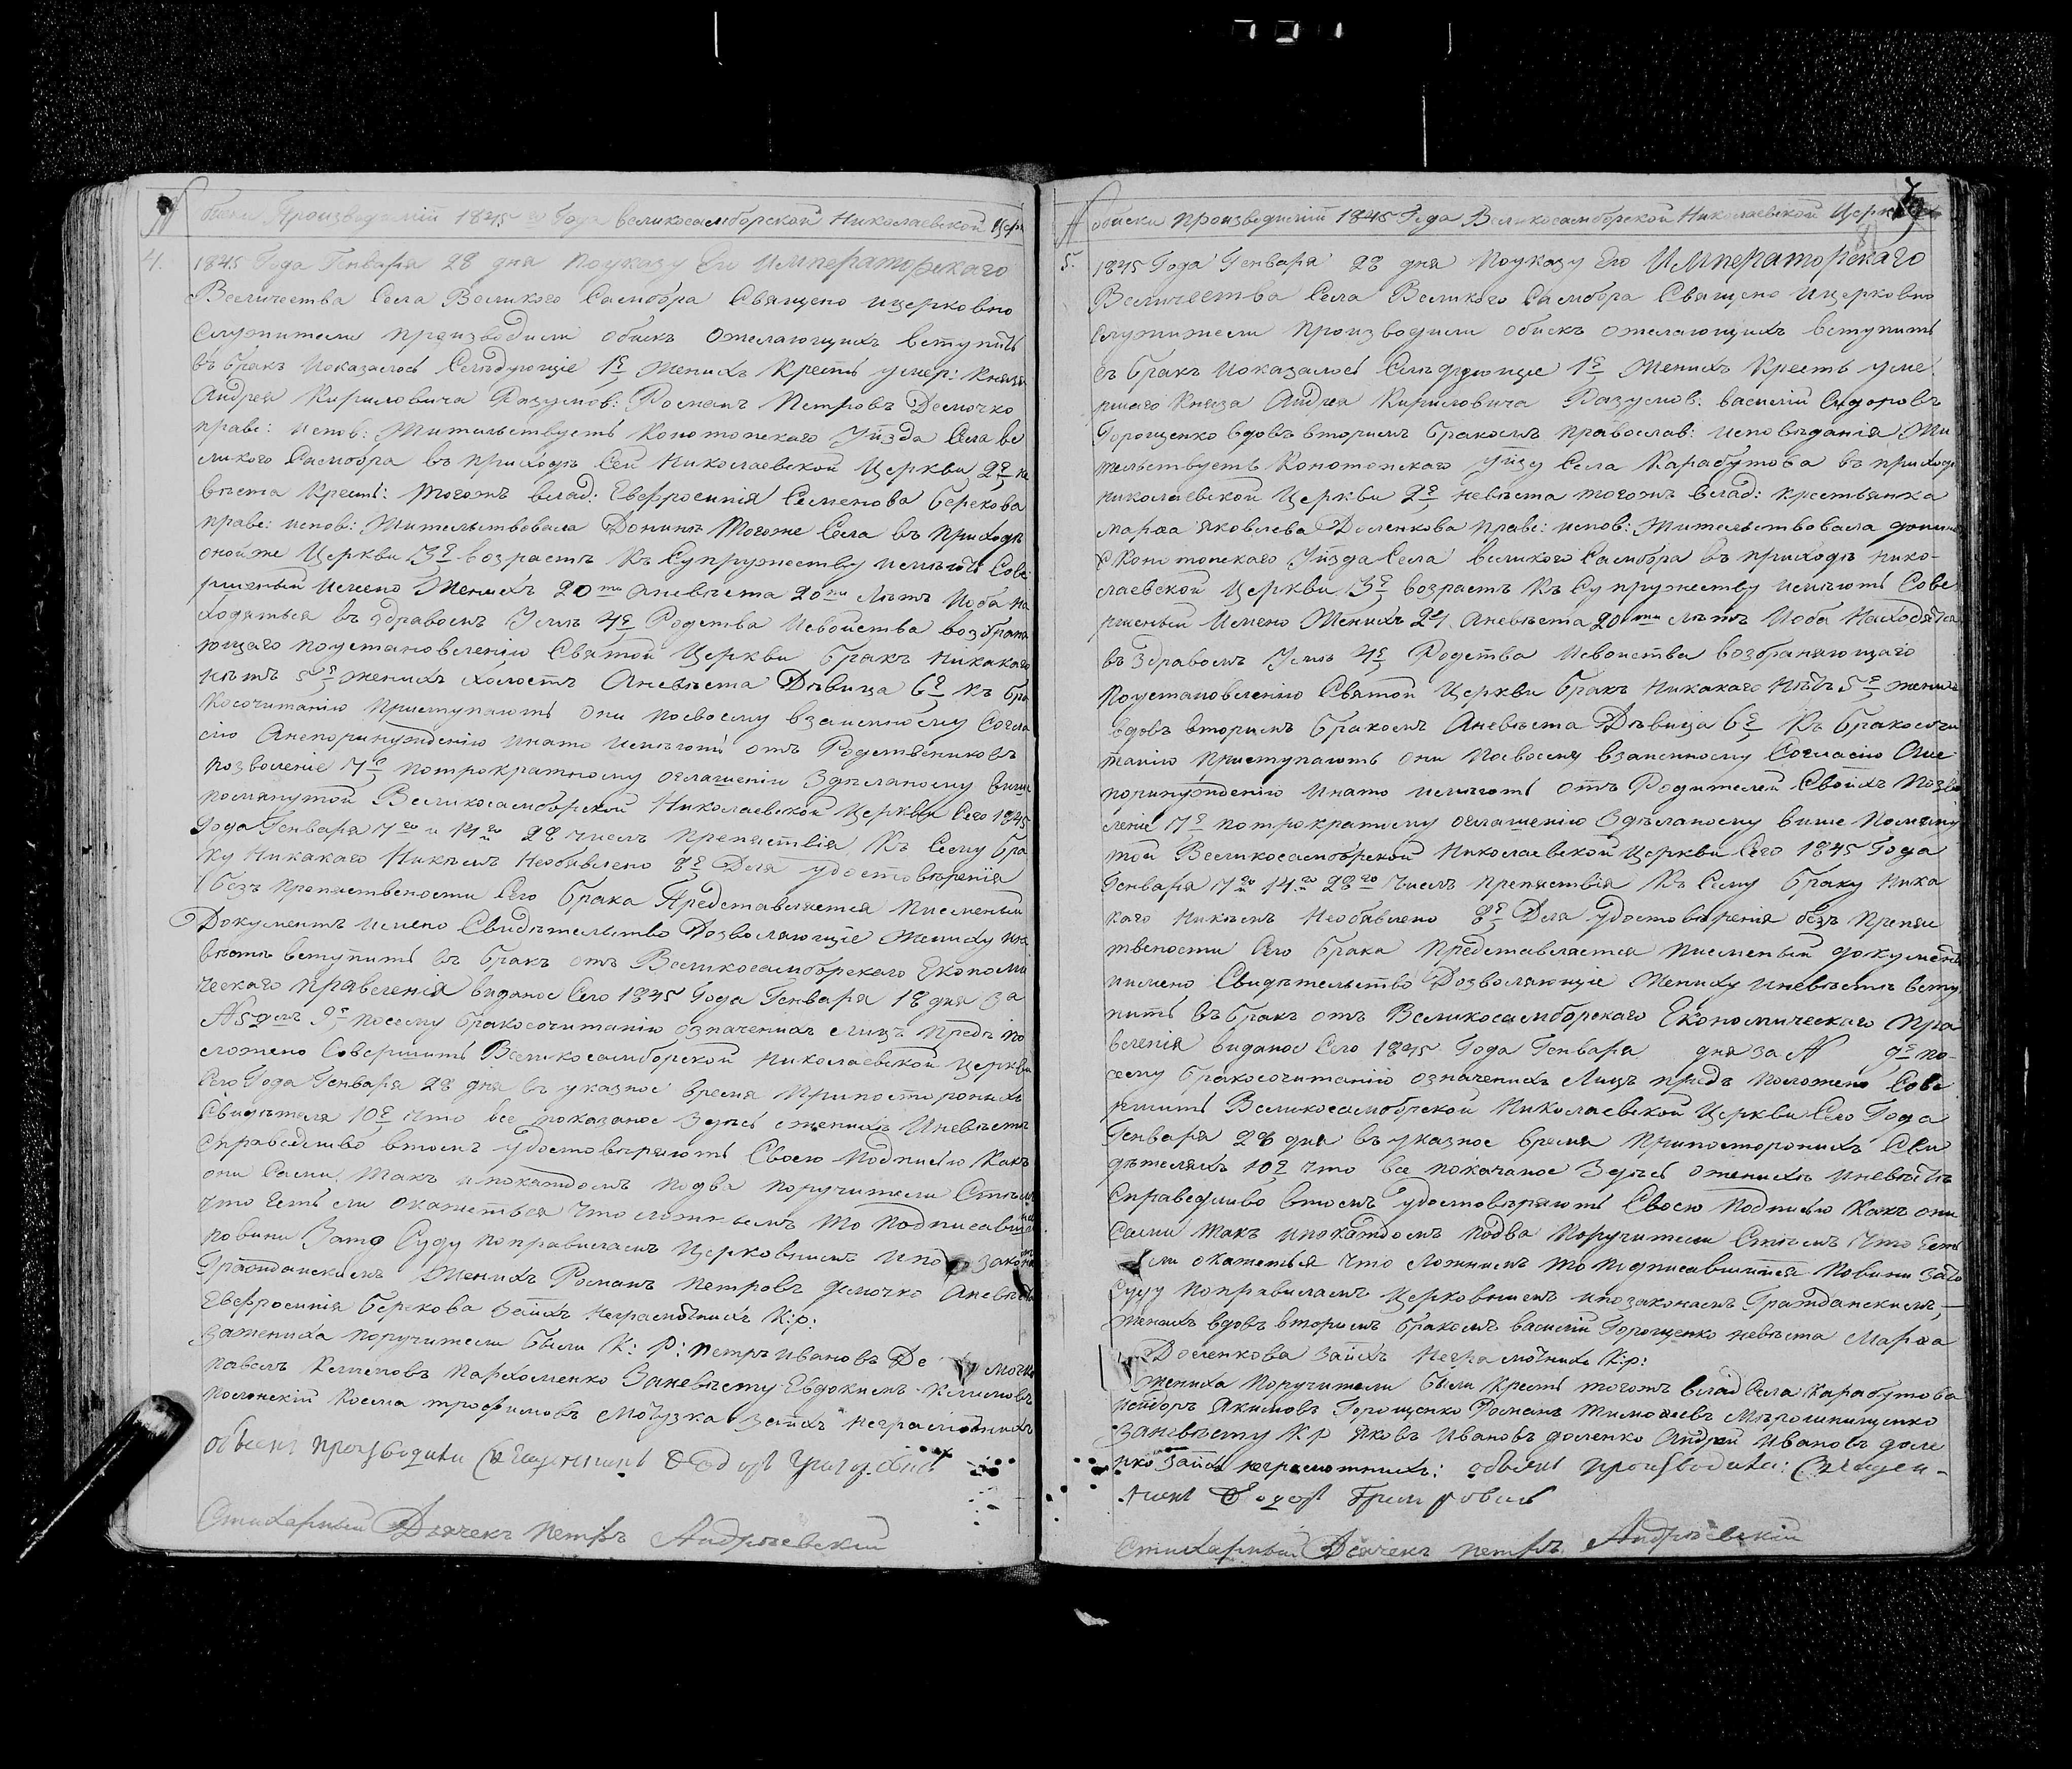 № обиски Производимiй 1845 го Года великосамборской Николаевской Церк
4. 1845 Года Генваря 28 дня поуказу Его Императорскаго
Величества Села Великого Самбора Священо ицерковно
Служители производили обискъ ожелающихъ вступить
въ бракъ показалось Слѣдующiе 1е Женихъ Крестъ умер: Князя
Андрея Кириловича Разумов: Романъ Петровъ Демочко
праве: испов: Жительствуетъ Конотопскаго Уѣзда Села ве
ликого Самбора въ приходѣ Сей Николаевской Церкви 2е не
вѣста Крест: тогожъ влад: Евфросинiя Семенова Берекова
праве: испов: Жительствовала Донинѣ Тогоже Села въ приходѣ
онойже Церкви 3е возрастъ Къ Супружеству имѣютъ Сове
ршеный Имено Женихъ 20ти аневѣста 20ти лѣтъ Иоба На
ходяться въ здравомъ Умѣ 4е Родства Исвойства возбраня
ющаго поустановленiю Святой Церкви бракъ Никакаго
нѣтъ 5е женихъ холостъ Аневѣста Дѣвица 6е Къ бра
Косочитанiю приступаютъ они посвоему взаимному Согла
сiю Анепоринуждению инато имѣютъ отъ Родствениковъ
позволенiе 7е потрократному оглашенiи Здѣланому више
помянутой Великосамборской Николаевской Церкви Сего 1845
Года Генваря 7го и 14го 28 числъ препятствiя Къ Сему бра
ку Никакаго Никѣмъ Необявлено 8е Для удостовѣренiя
безъ препятствености Сего брака Представляется писменый
Документъ имено Свидѣтельство Дозволяющiе Жениху ине
вѣстѣ вступить въ бракъ отъ Великосамборскаго Екопоми
ческаго правленiя виданое Сего 1845 Года Генваря 18 дня за
№ 5мъ 9е посему бракосочитанiю означенихъ Лицъ предъ по
ложено Совершить Великосамборской Николаевской Церкви
Сего Года Генваря 28 дня въ указное время Припосторонихъ
Свидѣтеля 10е что все показаное Здѣсь оженихѣ Иневѣстѣ
Справедливо втомъ удостовѣряютъ Своею Подписью Какъ
они Сами Такъ ипокаждомъ подва поручители Стѣмъ
что Естьли окажеться что ложнымъ то подписавшие
повини Зато Суду поправиламъ Церковнимъ ипо закона
Гражданскимъ Женихъ Романъ Петровъ Демочко Аневѣста
Евфросинiя Берекова Заихъ Неграмотнихъ К:р:
Зажениха поручители были К: Р: Петръ Ивановъ Демочко
павелъ Климовъ Пархоменко Заневѣсту Евдокимъ Климовъ
Полонскiй Косма трофимовъ Мотузка Заихъ Неграмотнихъ
обыскъ производили Священникъ Феодоръ
Стихарный Дьячекъ Петръ Андрѣевскiй
№ обиски производимiй 1845 Года Великосамборской Николаевской Церкви
5. 1845 Года Генваря 28 дня поуказу Его Императорскаго
Величества Села Великого Самбора Священо ицерковно
Служители производили обискъ ожелающихъ вступить
въ бракъ показалось Слѣдующiе 1е Женихъ Крестъ уме
ршаго Князя Андрея Кириловича Разумов: василiй Сидоровъ
Горощенко вдовъ вторимъ бракомъ православ: исповѣданiя Жи
тельствуетъ Конотопскаго Уѣзу Села Карабутова въ приходѣ
николаевской Церкви 2е невѣста тогожъ влад: Крестьянка
марфа Яковлева Доленкова праве: испов: Жительствовала донинѣ
Конотопскаго Уѣзда Села великого Самбора въ приходѣ нико-
лаевской Церкви 3е возрастъ Къ Супружеству имѣютъ Сове
ршеный Имено Женихъ 24 Аневѣста 20ти лѣтъ Иоба Находятся
въ здравомъ Умѣ 4е Родства Исвойства возбраняющаго
поустановленiю Святой Церкви бракъ Никакаго Нѣтъ 5е женихъ
вдовъ вторимъ бракомъ Аневѣста Дѣвица 6е Къ бракосочи
танiю приступаютъ они посвоему взаимному Согласiю Ане
поринужденiю инато имѣютъ отъ Родителей Своихъ позво
ленiе 7е потрократному оглашенiю Здѣланому више помяну
той Великосамборской Николаевской Церкви Сего 1845 Года
Генваря 7го 14го 28го числъ препятствiя Къ Сему браку Ника
каго Никѣмъ Необявлено 8е Для удостовѣренiя безъ препят
твености Сего брака представляется писменый документъ
имено Свидѣтельство Дозволяющiе Жениху иневѣстѣ всту
пить въ бракъ отъ Великосамборскаго Економическаго Пра
вленiя виданое Сего 1845 Года Генваря дня за № 9е по-
сему бракосочитанiю означенихъ Лицъ предъ положено Сове
ршить Великосамборской Николаевской Церкви Сего Года
Генваря 28 дня въ указное время припосторонихъ Сви
дѣтеляхъ 10е что все показаное Здѣсь оженихѣ иневѣстѣ
Справедливо втомъ удостовѣряютъ Своею подписью Какъ они
Сами такъ ипокаждомъ подва поручители Стѣмъ что Есть
ли окажеться что ложнимъ то подписавшiеся повини Зато
Суду поправиламъ Церковнимъ ипозаконамъ Гражданскимъ,—
женихъ вдовъ вторимъ бракомъ василiй Горощенко невѣста Марфа
Доленкова Заихъ Неграмотнихъ К:р:
жениха поручители были Крестъ тогожъ влад Села Карабутова
Якимовъ Горощенко Романъ Тимофѣевъ Мѣрошниценко
Заневѣсту К р Яковъ Ивановъ доленко Андрей Ивановъ доле
нко Заихъ неграмотнихъ: обыскъ производили: Священ-
никъ Феодоръ
Стихарный Дьячекъ Петръ Андрѣевскiй